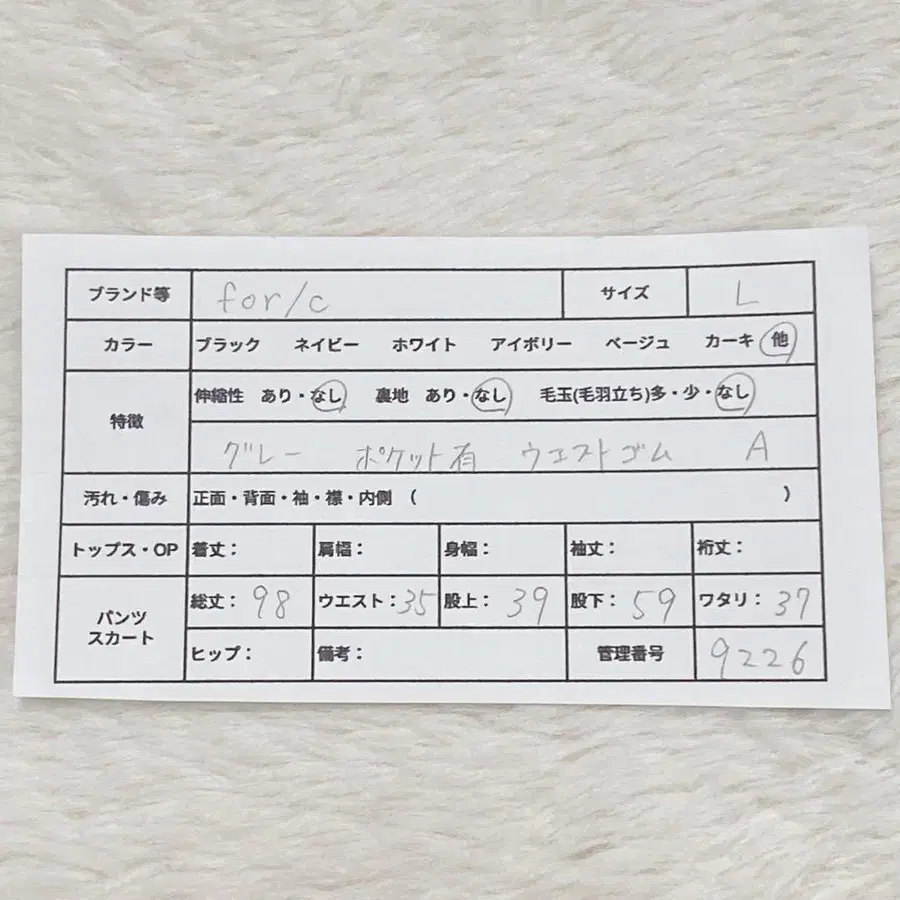 ブランド等 for/c サイズ L
カラー ブラック ネイビー ホワイト アイボリー ベージュ カーキ 他
特徴 伸縮性 あり・なし 裏地 あり・なし 毛玉(毛羽立ち)多・少・なし
グレー ポケット有 ウエストゴム A
汚れ・傷み 正面・背面・袖・襟・内側 ( )
トップス・OP 着丈: 肩幅: 身幅: 袖丈: 裄丈:
パンツ スカート 総丈:98 ウエスト:35 股上:39 股下:59 ワタリ:37
ヒップ: 備考: 管理番号 9226